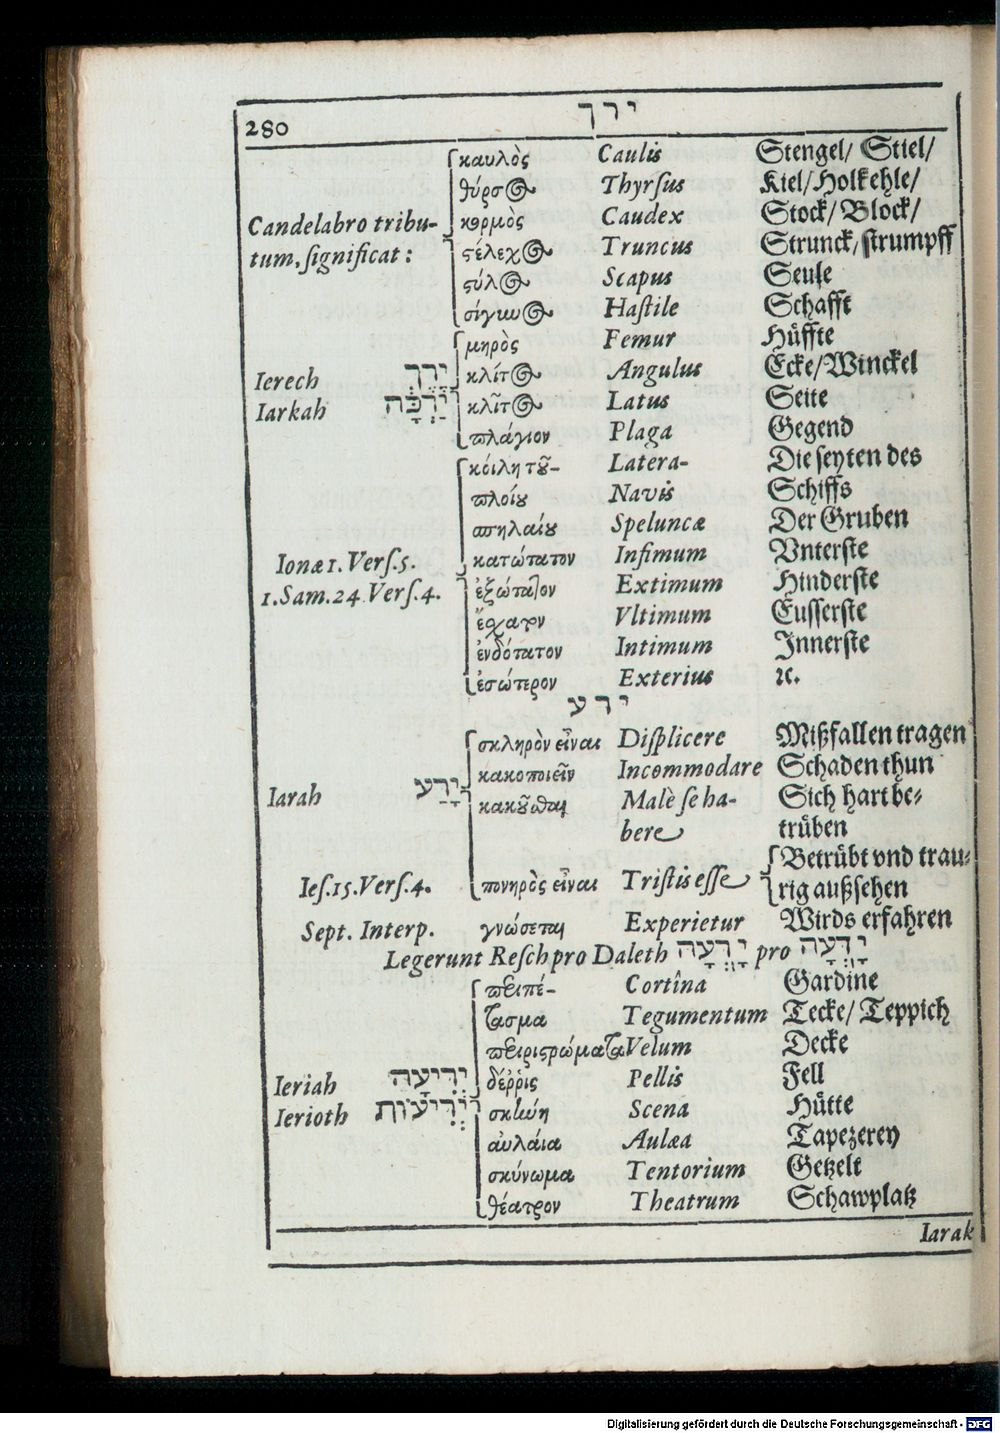 280 ירך
καυλὸς Caulis Stengel/ Stiel/
θύρσος Thyrſus Kiel/Holkehle/
κορμὸς Caudex Stock/ Block/
Candelabro tribu-
ϛέλεχος Truncus Strunck/ſtrumpff
tum, ſignificat:
ϛύλος Scapus Seule
Haſtile Schafft
μηρὸς Femur Hüffte
Ierech יָרֵךְ κλίτος Angulus Ecke/Winckel
Iarkah יַרְכָּה κλῖτος Latus Seite
πλάγιον Plaga Gegend
κόιλη τȣ͂- Latera- Die ſeyten des
πλοίȣ Navis Schiffs
σπηλαίȣ Speluncæ Der Gruben
Ionæ 1. Verſ. 5. κατώτατον Infimum Vnterſte
1. Sam. 24 Verſ. 4. ἐξώτατον Extimum Hinderſte
ἔσχατον Vltimum Euſſerſte
ἐνδότατον Intimum Innerſte
ἐσώτερον Exterius ꝛc.
ירע
σκληρὸν εἶναι Diſplicere Mißfallen tragen
κακοποιεῖν Incommodare Schaden thun
Iarah יָרַע κακȣ͂σθαι Malè ſe ha- Sich hart be-
bere trüben
Betrübt vnd trau-
Ieſ. 15. Verſ. 4. πονηρὸς εἶναι Triſtis eſſe rig außſehen
Sept. Interp. γνώσεται Experietur Wirds erfahren
Legerunt Reſch pro Daleth יָרְעָה pro יָדְעָה
περιπέ- Cortina Gardine
τασμα Tegumentum Tecke/ Teppich
περιϛρώματα Velum Decke
Ieriah יְרִיעָה δέῤῥις Pellis Fell
Ierioth יְרִיעוֹת σκηνὴ Scena Hütte
αὐλάια Aulæa Tapezerey
σκήνωμα Tentorium Getzelt
θέατρον Theatrum Schawplatz
Iarak
Digitalisierung gefördert durch die Deutsche Forschungsgemeinschaft - DFG